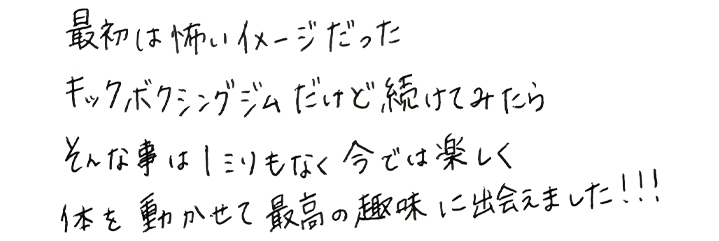 最初は怖いイメージだった
キックボクシングジムだけど続けてみたら
そんな事は1ミリもなく今では楽しく
体を動かせて最高の趣味に出会えました!!!